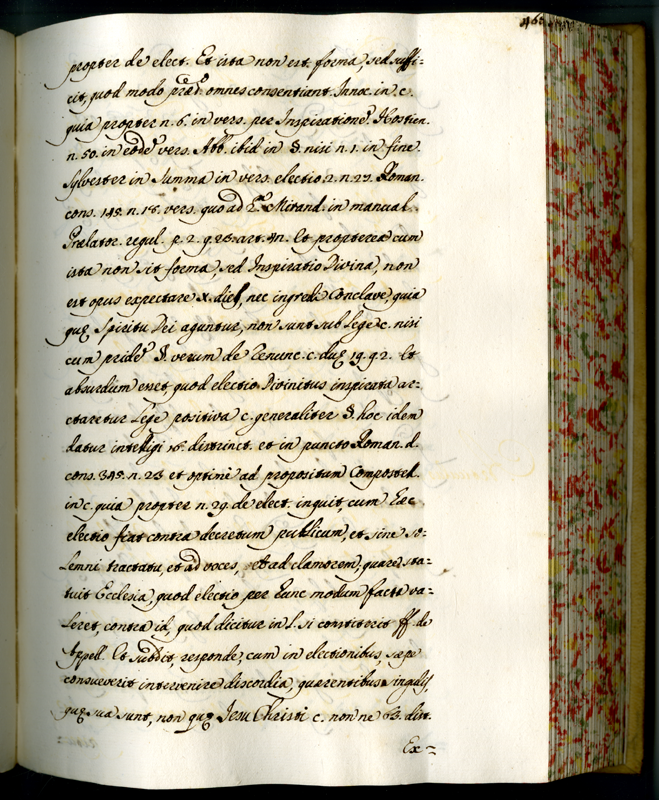 465
propter de elect. Et ista non est forma, sed suffi=
cit, quod modo præd.^o omnes consentiant. Innoc. in c.
quia propter n. 6. in vers. per Inspiratione. Hostien.
n. 50. in eode vers. Abb. ibid. in §. nisi n. 1. in fine.
Sylvester in Summa in vers. electio 2. n. 23. Roman.
cons. 145. n. 18. vers. quo ad Mirand. in manual.
Prælator. regul. p. 2. q. 23. art. Et propterea cum
ista non sit forma, sed Inspiratio Divina, non
est opus expectare X. dies, nec ingredi Conclave, quia
quę Spiritu Dei aguntur, non sunt sub lege c. nisi
cum pride §. verum de Renunc. c. duę 19. q. 2. Et
absurdum esset, quod electio Divinitus inspirata ar=
ctaretur Lege positiva c. generaliter §. hoc idem
datur intelligi 16. distinct. et in puncto Roman. d.
cons. 345. n. 23 et optime ad propositum Compostel.
in c. quia propter n. 29. de elect. inquit, cum Hæc
electio fiat contra decretum publicum, et sine so=
lemni tractatu, et ad voces, et ad clamorem, quare sta=
tuit Ecclesia, quod electio per hunc modum facta va=
leret, contra id, quod dicitur in l. si constiterit ff. de
Appell. Et subdit, responde, cum in electionibus, sæpe
consueverit intervenire discordia, quærentibus singulis,
quę sua sunt, non quę Jesu Christi c. non ne 63. dist.
Ex=